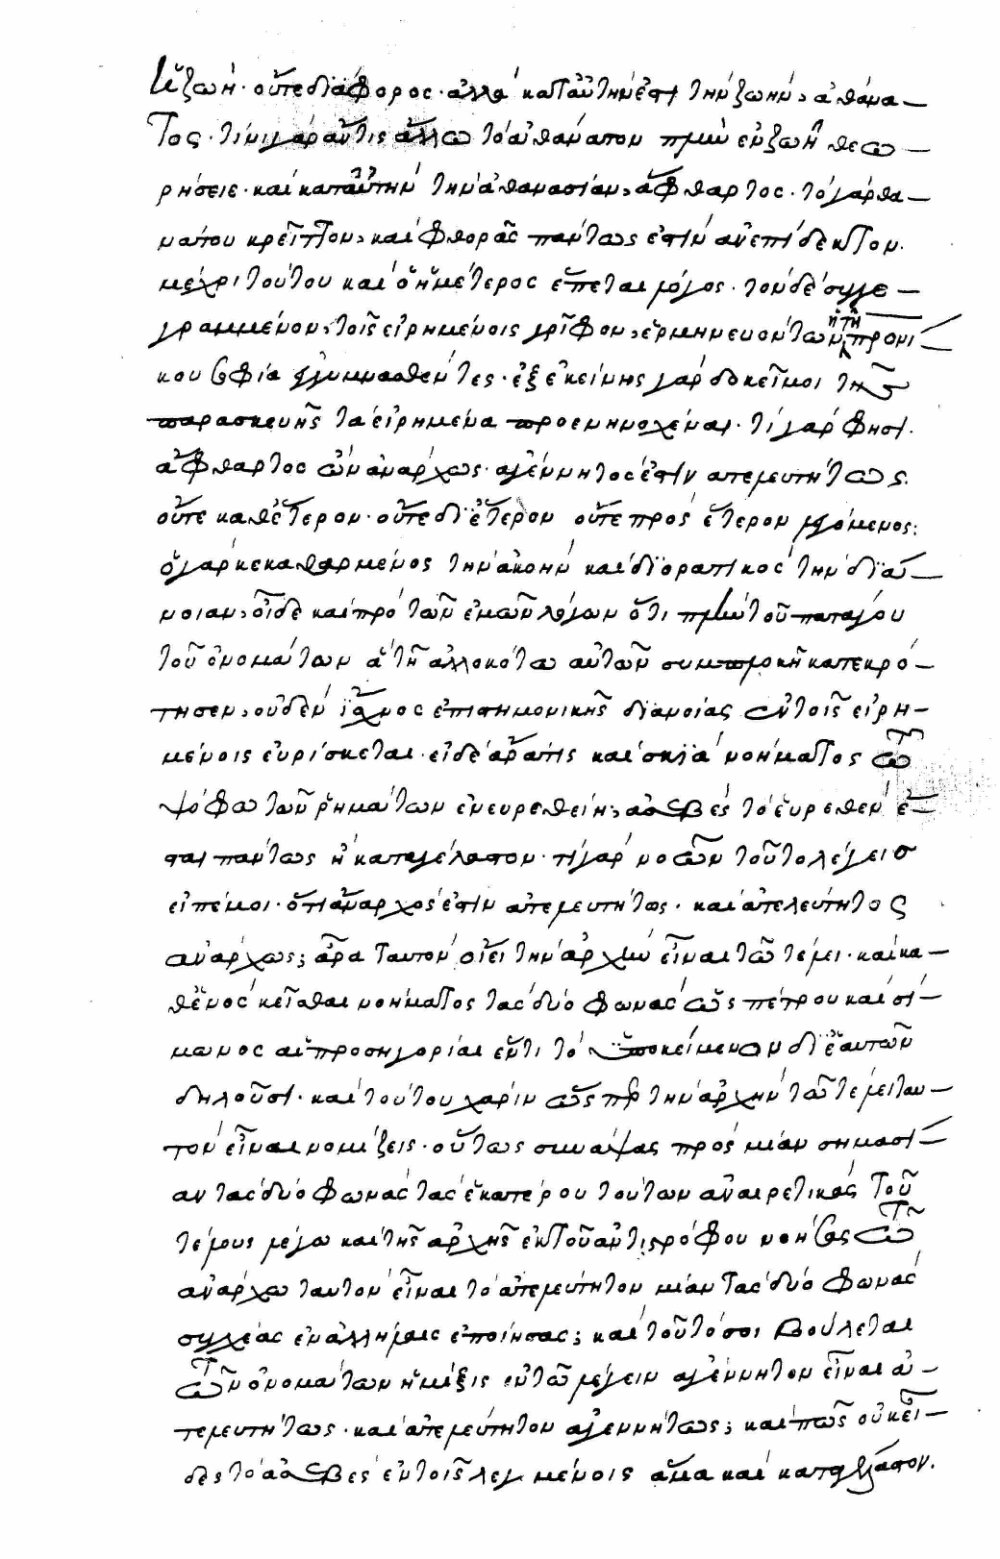 ἡ ζωὴ· οὔτε διάφορος· ἀλλὰ κατ' αὐτὴν ἐστὶ τὴν ζωὴν, ἀθάνα–
τος· τίνι γὰρ ἄν τις ἄλλω τὸ ἀθάνατον πλὴν ἐν ζωῆ θεω–
ρήσειε· καὶ κατ' αὐτὴν τὴν ἀθανασίαν, ἄφθαρτος· τὸ γὰρ θα–
νάτου κρεῖττον, καὶ φθορᾶς πάντως ἐστὶν ἀνεπίδεκτον.
μέχρι τούτου καὶ ὁ ἡμέτερος ἕπεται λόγος· τὸν δὲ συγγε–
γραμμένον τοῖς εἰρημένοις γρῖφον, ἑρμηνευόντων ἡ τῆ προνί
κου σοφία ἐγγυμνασθέντες· ἐξ ἐκείνης γὰρ δοκεῖ μοι τῆς
παρασκευῆς τὰ εἰρημένα προενηνοχέναι· τί γὰρ φησι.
ἄφθαρτος ὢν ἀνάρχως· ἀγέννητος ἐστὶν ἀτελευτήτως.
οὔτε καθ' ἕτερον· οὔτε δι' ἕτερον οὔτε πρὸς ἕτερον λεγόμενος:
ὁ γὰρ κεκαθαρμένος τὴν ἀκοὴν καὶ διορατικὸς τὴν διά–
νοιαν, οἶδε καὶ πρὸ τῶν ἐμῶν λόγων ὅτι πλὴν τοῦ παταγου
τοῦ ὀνομάτων ἃ τῆ ἀλλοκότω αὐτῶν συμπλοκῆ κατεκρό–
τησεν, οὐδὲν ἴχνος ἐπιστημονικῆς διανοίας ἐν τοῖς εἰρη–
μένοις εὑρίσκεται· εἰ δὲ ἄρα τις καὶ σκιὰ νοήματος ἐν τῶ
ψόφω τῶν ῥημάτων ἐνευρεθείη, ἀσεβὲς τὸ εὑρεθὲν ἔ–
σται πάντως ἢ καταγέλαστον· τί γὰρ νοῶν τοῦτο λέγεις
εἰπέ μοι· ὅτι ἄναρχος ἐστὶν ἀτελευτήτως· καὶ ἀτελεύτητος
ἀνάρχως; ἆρα ταυτὸν οἴει τὴν ἀρχὴν εἶναι τῶ τέλει· καὶ κα–
θ' ἑνὸς κεῖσθαι νοήματος τὰς δύο φωνὰς ὡς πέτρου καὶ σί–
μωνος αἱ προσηγορίαι ἕν τι τὸ ὑποκείμενον δι' ἑαυτῶν
δηλοῦσι· καὶ τούτου χάριν ὥσπερ τὴν ἀρχὴν τῶ τέλει ταυ–
τὸν εἶναι νομίζεις· οὕτως συνάψας πρὸς μίαν σημασί–
αν τὰς δύο φωνὰς τὰς ἑκατέρου τούτων ἀναιρετικὰς τοῦ
τέλους λέγω καὶ τῆς ἀρχῆς ἐκ τοῦ ἀντιστρόφου νοήσας τῶ
ἀνάρχω ταυτὸν εἶναι τὸ ἀτελεύτητον μίαν τὰς δύο φωνὰς
συγχέας ἐν ἀλλήλαις ἐποίησας; καὶ τοῦτό σοι βούλεται
τῶν ὀνομάτων ἡ μίξις ἐν τῶ λέγειν ἀγέννητον εἶναι ἀ–
τελευτήτως· καὶ ἀτελεύτητον ἀγεννήτως; καὶ πῶς οὐκ εἶ–
δες τὸ ἀσεβὲς ἐν τοῖς λεγομένοις ἅμα καὶ καταγέλαστον.